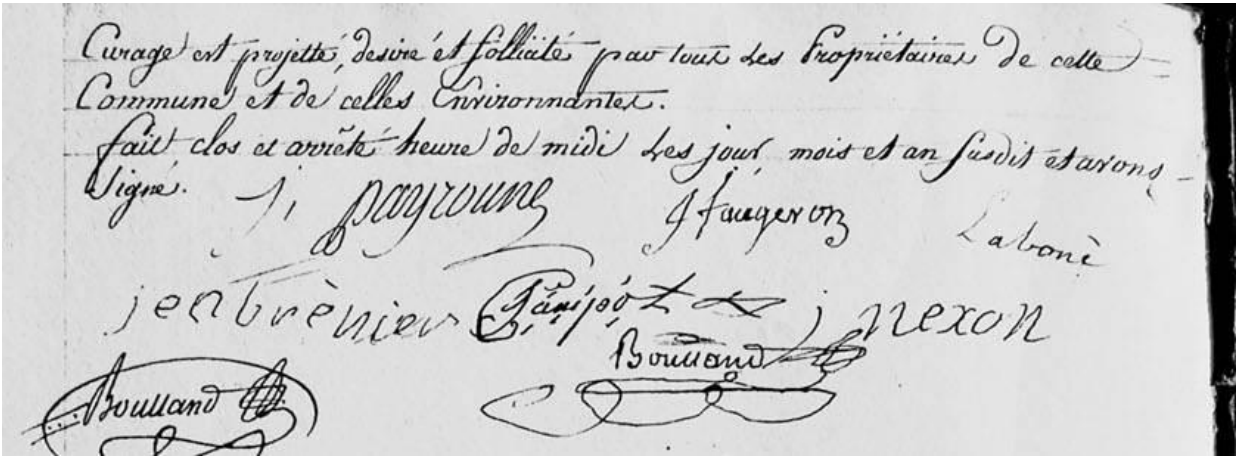 Curage est projetté, desiré et sollicité par tous les Propriétaires de cette
Commune et de celles Environnantes.
fait clos et arrêté heure de midi les jour, mois et an susdit et avons
signé. j, payroune J faugeron Labonè
jentrènier j nexon
Boulland
Boulland